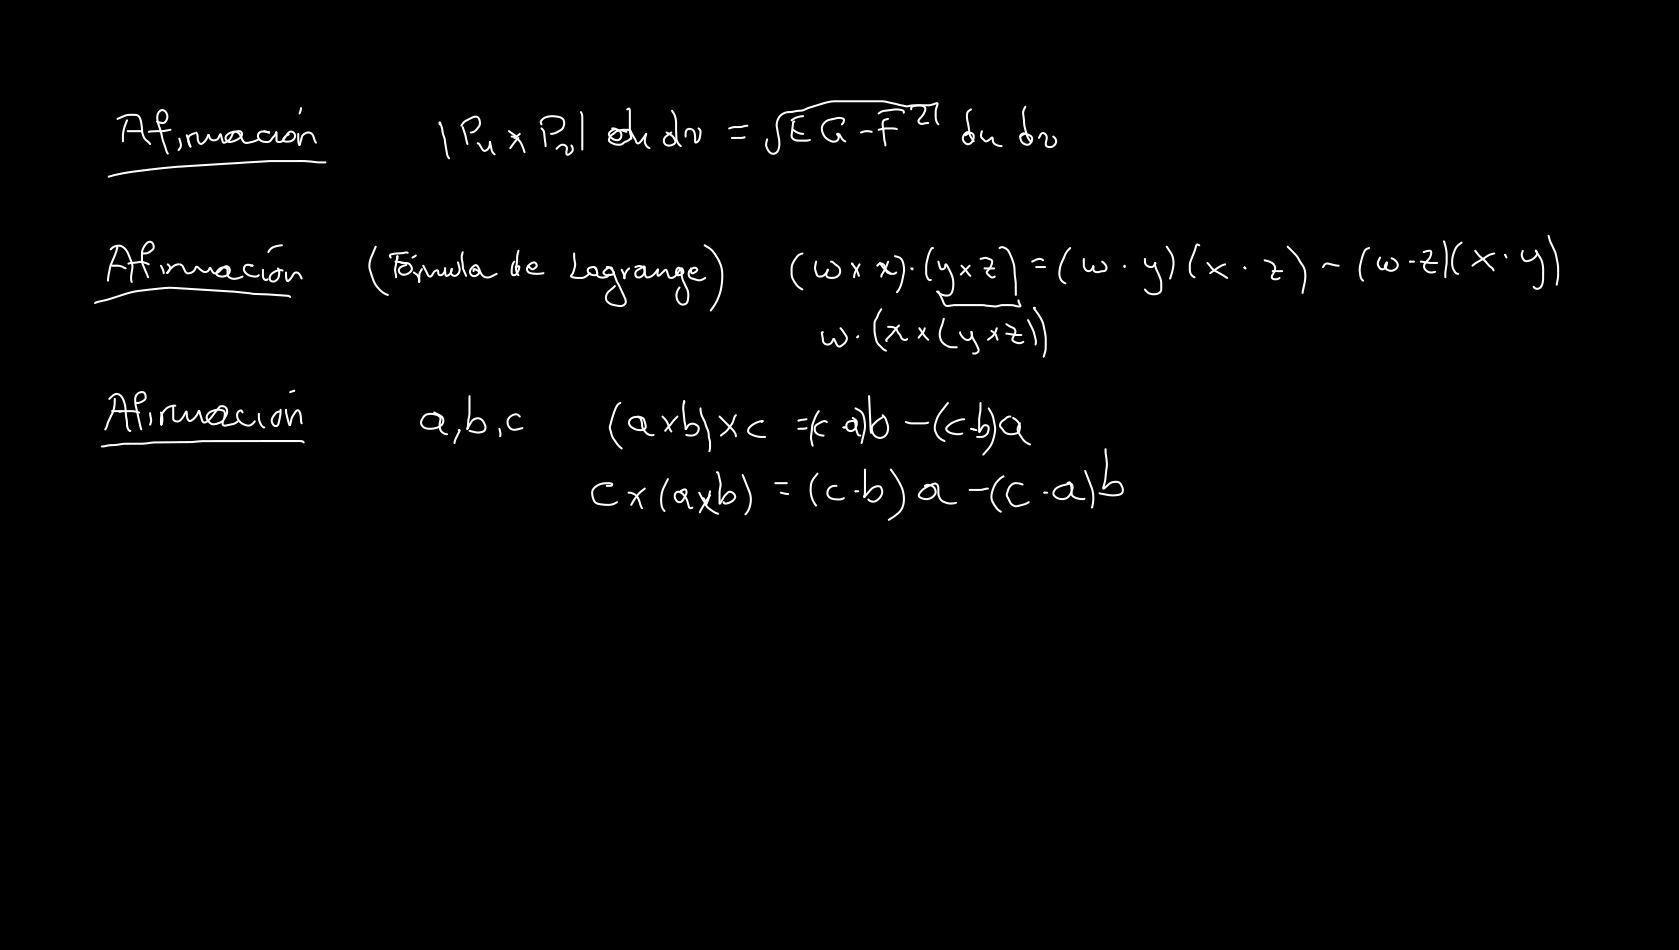 Afirmación |Pu × Pv| du dv = √(EG - F²) du dv
Afirmación (Fórmula de Lagrange) (w × x)·(y × z) = (w · y)(x · z) - (w · z)(x · y)
w·(x × (y × z))
Afirmación a, b, c (a × b) × c = (c · a)b - (c · b)a
c × (a × b) = (c · b) a - (c · a) b